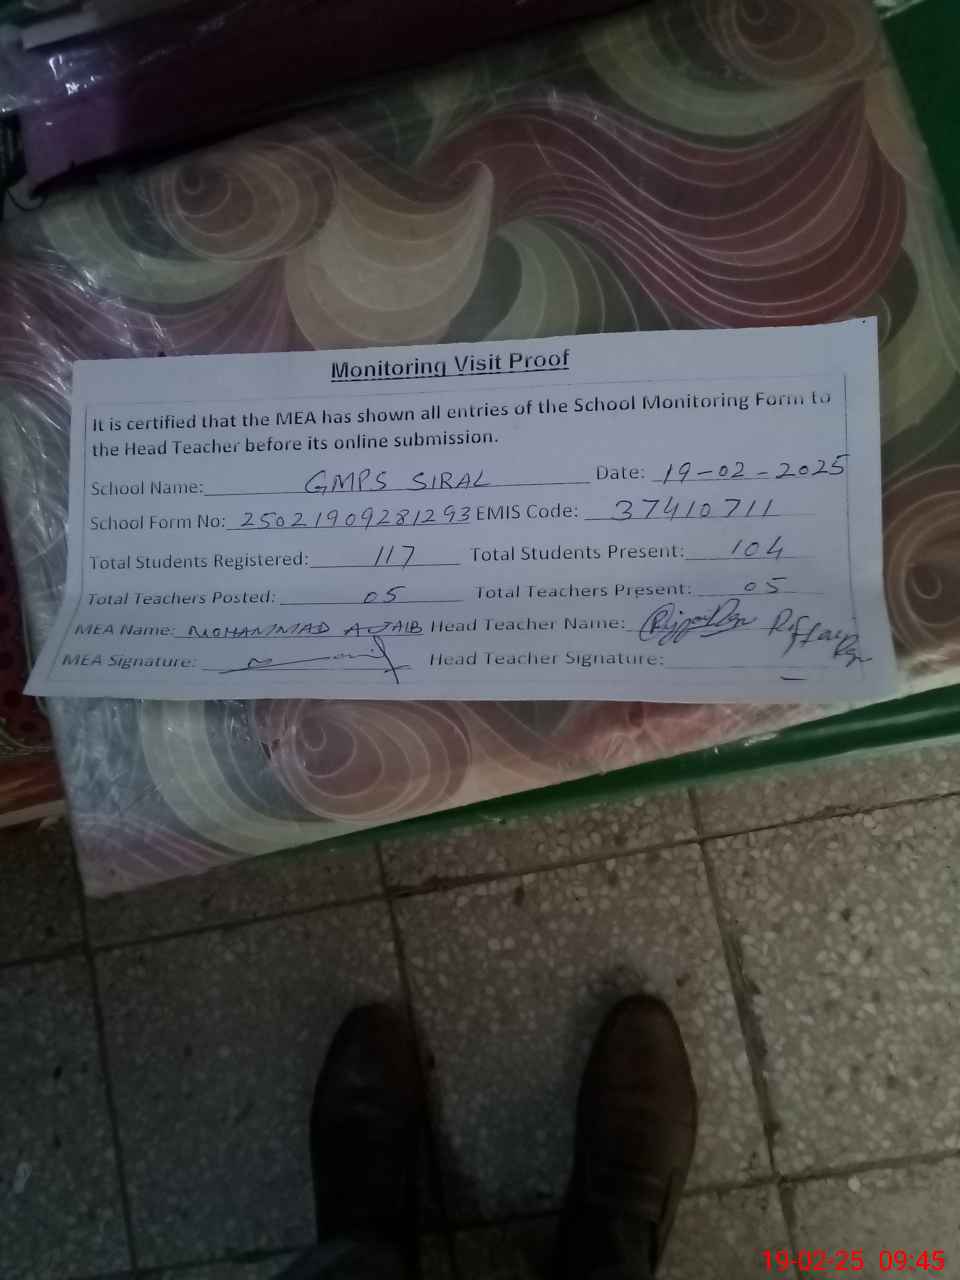 Monitoring Visit Proof
It is certified that the MEA has shown all entries of the School Monitoring Form to
the Head Teacher before its online submission.
School Name: GMPS SIRAL Date: 19-02-2025
School Form No: 25021909281293 EMIS Code: 37410711
Total Students Registered: 117 Total Students Present: 104
Total Teachers Posted: 05 Total Teachers Present: 05
MEA Name: MOHAMMAD AJAIB Head Teacher Name:
MEA Signature: Head Teacher Signature:
19-02-25 09:45